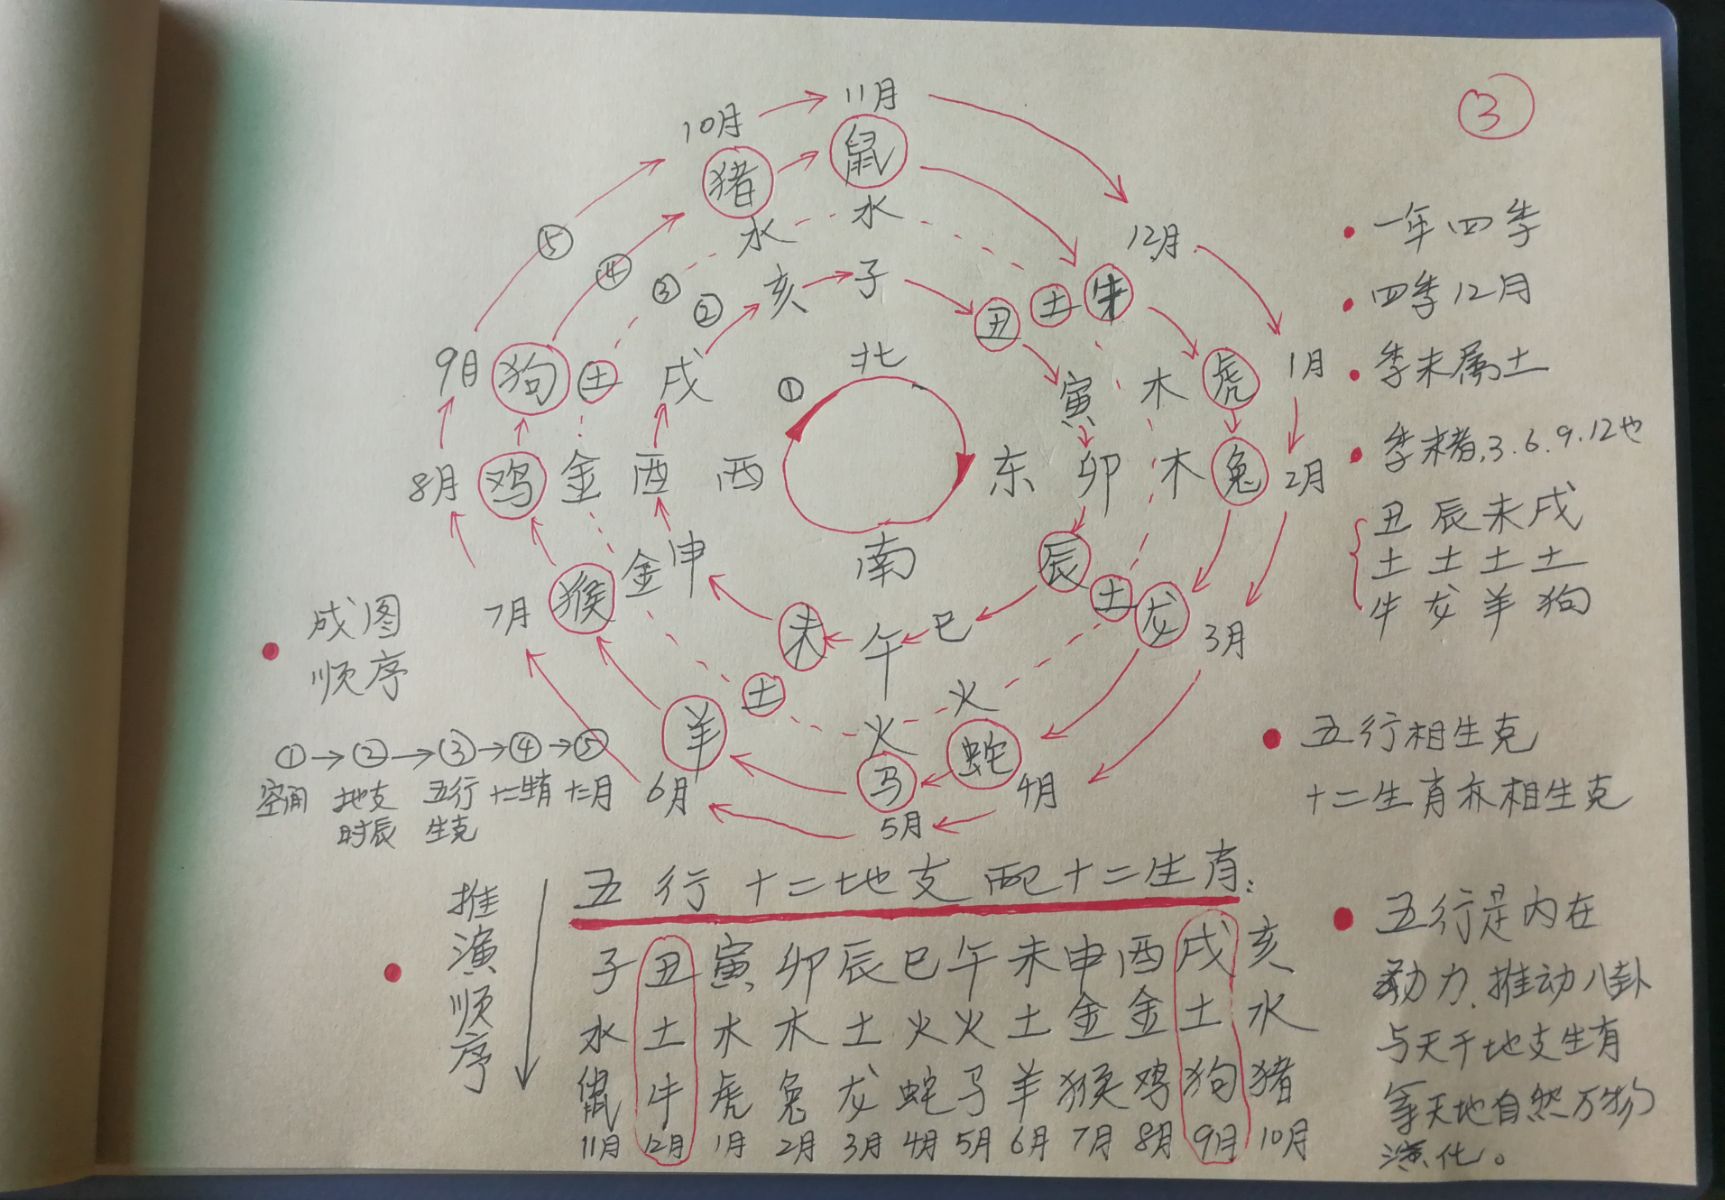 ③
10月 11月
猪 鼠
12月
水 水
⑤ ④ ③ ② 亥 子
丑 土 牛
9月 狗 土 戌 ① 北 寅 木 虎 1月
8月 鸡 金 酉 西 东 卯 木 兔 2月
7月 猴 金 申 南 辰 土 龙 3月
未 午 巳
土 火 火
羊 马 蛇
6月 5月 4月
• 一年四季
• 四季12月
• 季末属土
• 季末者,3.6.9.12也
丑 辰 未 戌
土 土 土 土
牛 龙 羊 狗
• 五行相生克
十二生肖亦相生克
• 五行是内在
动力,推动八卦
与天干地支生肖
等天地自然万物
演化。
• 成图
顺序
①→②→③→④→⑤
空间 地支 五行 十二生肖 十二月
时辰 生克
• 推演顺序
五行十二地支配十二生肖:
子 丑 寅 卯 辰 巳 午 未 申 酉 戌 亥
水 土 木 木 土 火 火 土 金 金 土 水
鼠 牛 虎 兔 龙 蛇 马 羊 猴 鸡 狗 猪
11月 12月 1月 2月 3月 4月 5月 6月 7月 8月 9月 10月